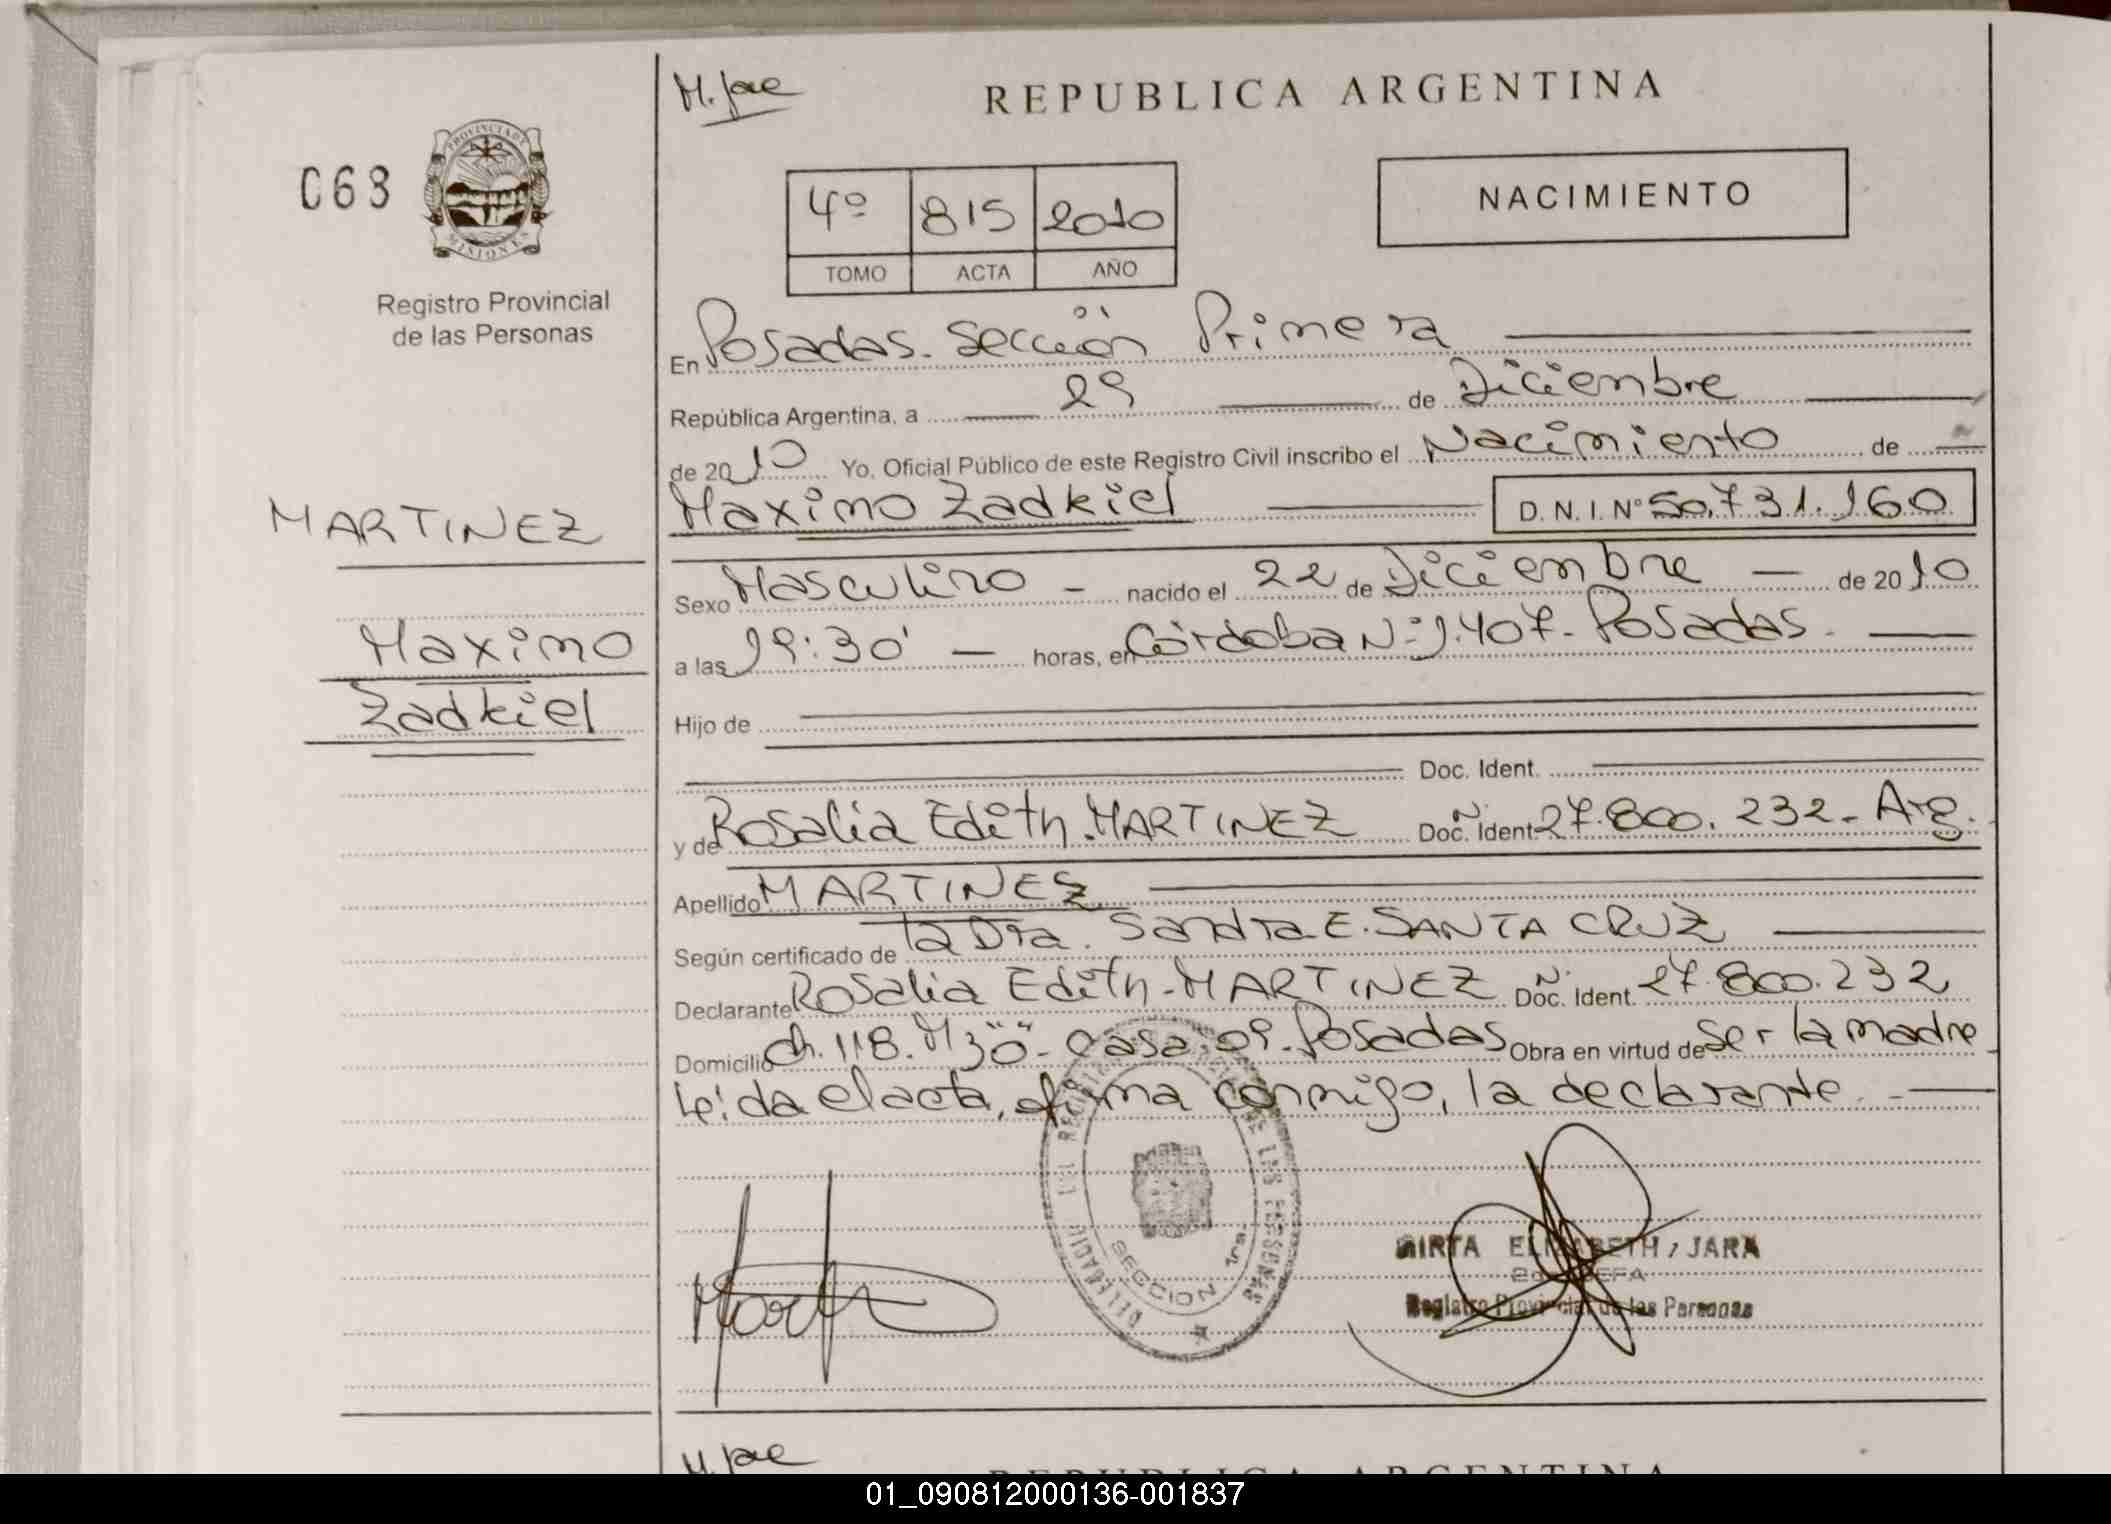 M. Jose
REPUBLICA ARGENTINA
068
PROVINCIA DE
MISIONES
Registro Provincial
de las Personas
4º 815 2010
TOMO ACTA AÑO
NACIMIENTO
En Posadas. Sección Primera
República Argentina, a 29 de Diciembre
de 2010 Yo, Oficial Público de este Registro Civil inscribo el Nacimiento de
Maximo Zadkiel D. N. I. Nº 50.731.160
MARTINEZ
Maximo
Zadkiel
Sexo Masculino - nacido el 22 de Diciembre — de 2010
a las 19:30' — horas, en Córdoba Nº 1.407 - Posadas.
Hijo de
Doc. Ident.
y de Rosalia Edith. MARTINEZ Doc. Ident Nº 27.800.232 - Arg.
Apellido MARTINEZ
Según certificado de la Dra. Sandra E. SANTA CRUZ
Declarante Rosalia Edith - MARTINEZ Doc. Ident. Nº 27.800.232
Domicilio Ch. 118. Mz "o" - casa 09. Posadas Obra en virtud de Ser la madre
Leida el acta, firma conmigo, la declarante.
SECCION 1ra.
MIRTA ELIZABETH JARA
JEFA
Registro Provincial de las Personas
REPUBLICA ARGENTINA
01_090812000136-001837